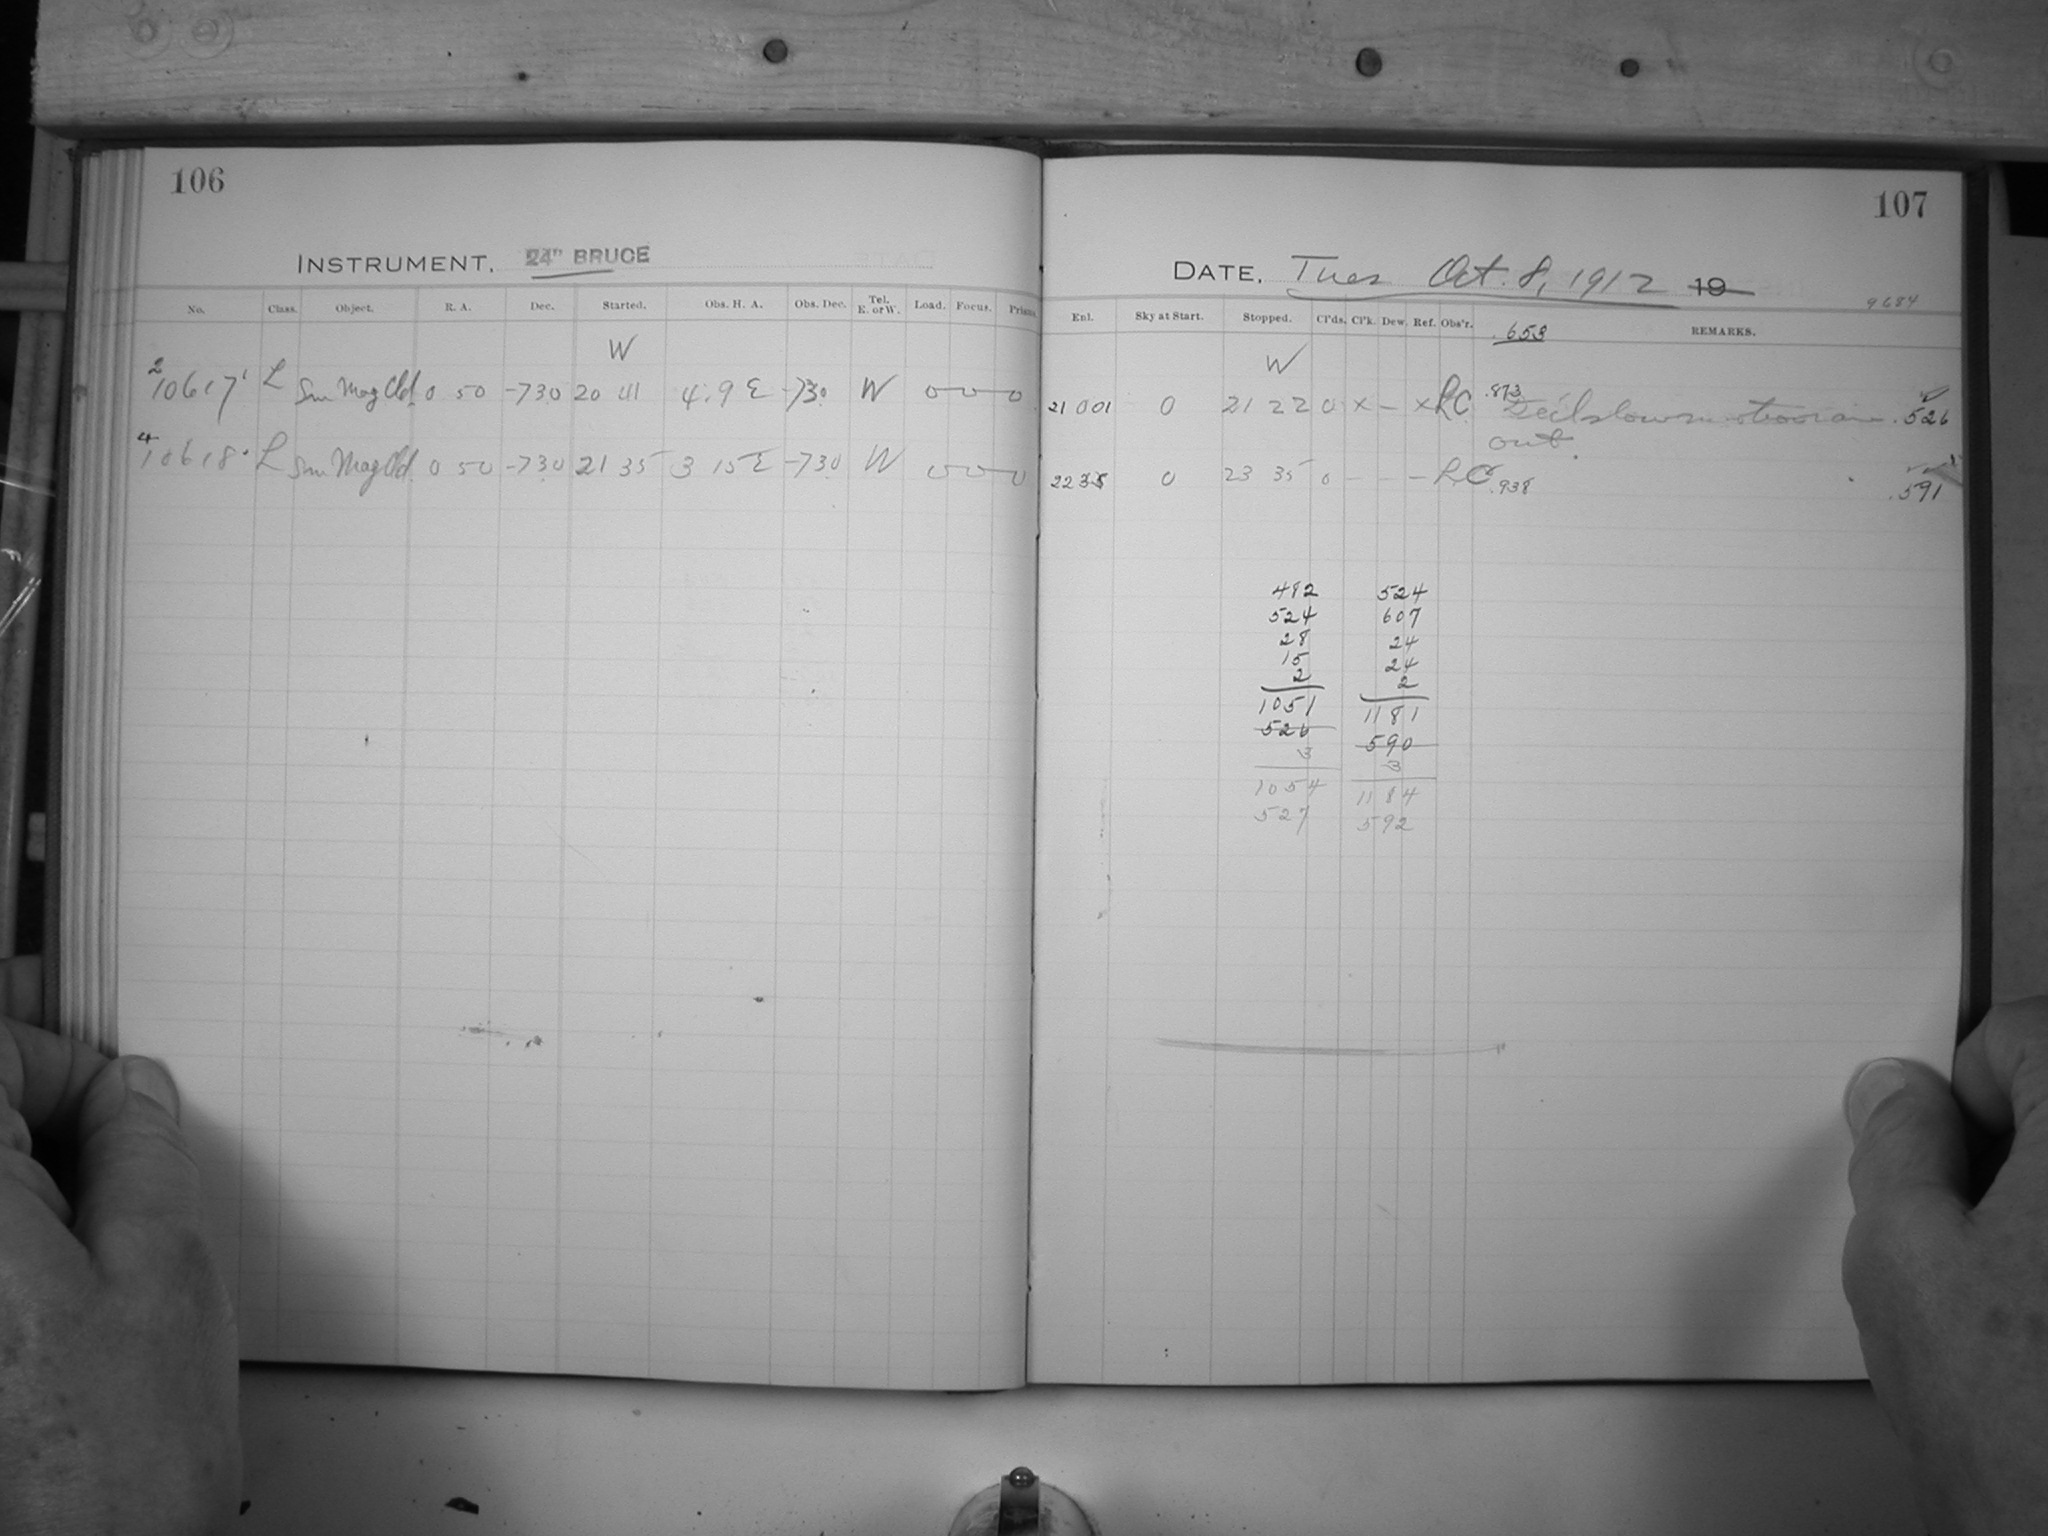 106
INSTRUMENT, 24" BRUCE
No. Class. Object. R. A. Dec. Started. Obs. H. A. Obs. Dec. Tel. E. or W. Load. Focus. Prisms.
W
2 10617 L Sm Mag Cld. 0 50 -73 0 20 41 4 . 9 E -73 0 W 0 0 0
4 10618 L Sm Mag Cld. 0 50 -73 0 21 35 3 15 E -73 0 W 0 0 0
107
DATE, Tues Oct. 8, 1912 19
9684
Enl. Sky at Start. Stopped. Cl'ds. Cl'k. Dew. Ref. Obs'r. .653 REMARKS.
W
21 001 0 21 22 0 x - x RC .873 Decl slow motion ran .526
out.
22 35 0 23 35 0 - - - RC .938 .591
482 524
524 607
28 24
15 24
2 2
1051 1181
526 590
3 3
1054 1184
527 592